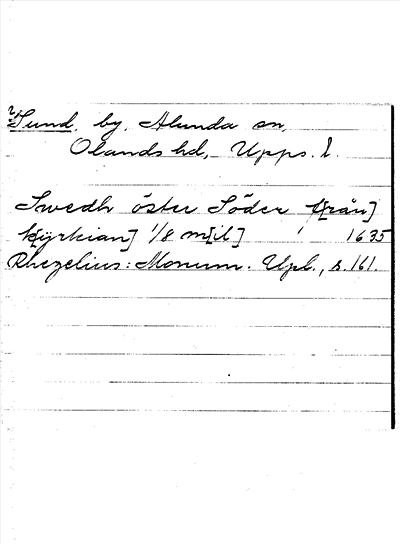 Sund, by, Alunda sn,
Olands hd, Upps. l.
Swedh öster Söder f[rån]
k[yrkian] 1/8 m[il] 1635
Rhezelius: Monum. Upl., s. 161.